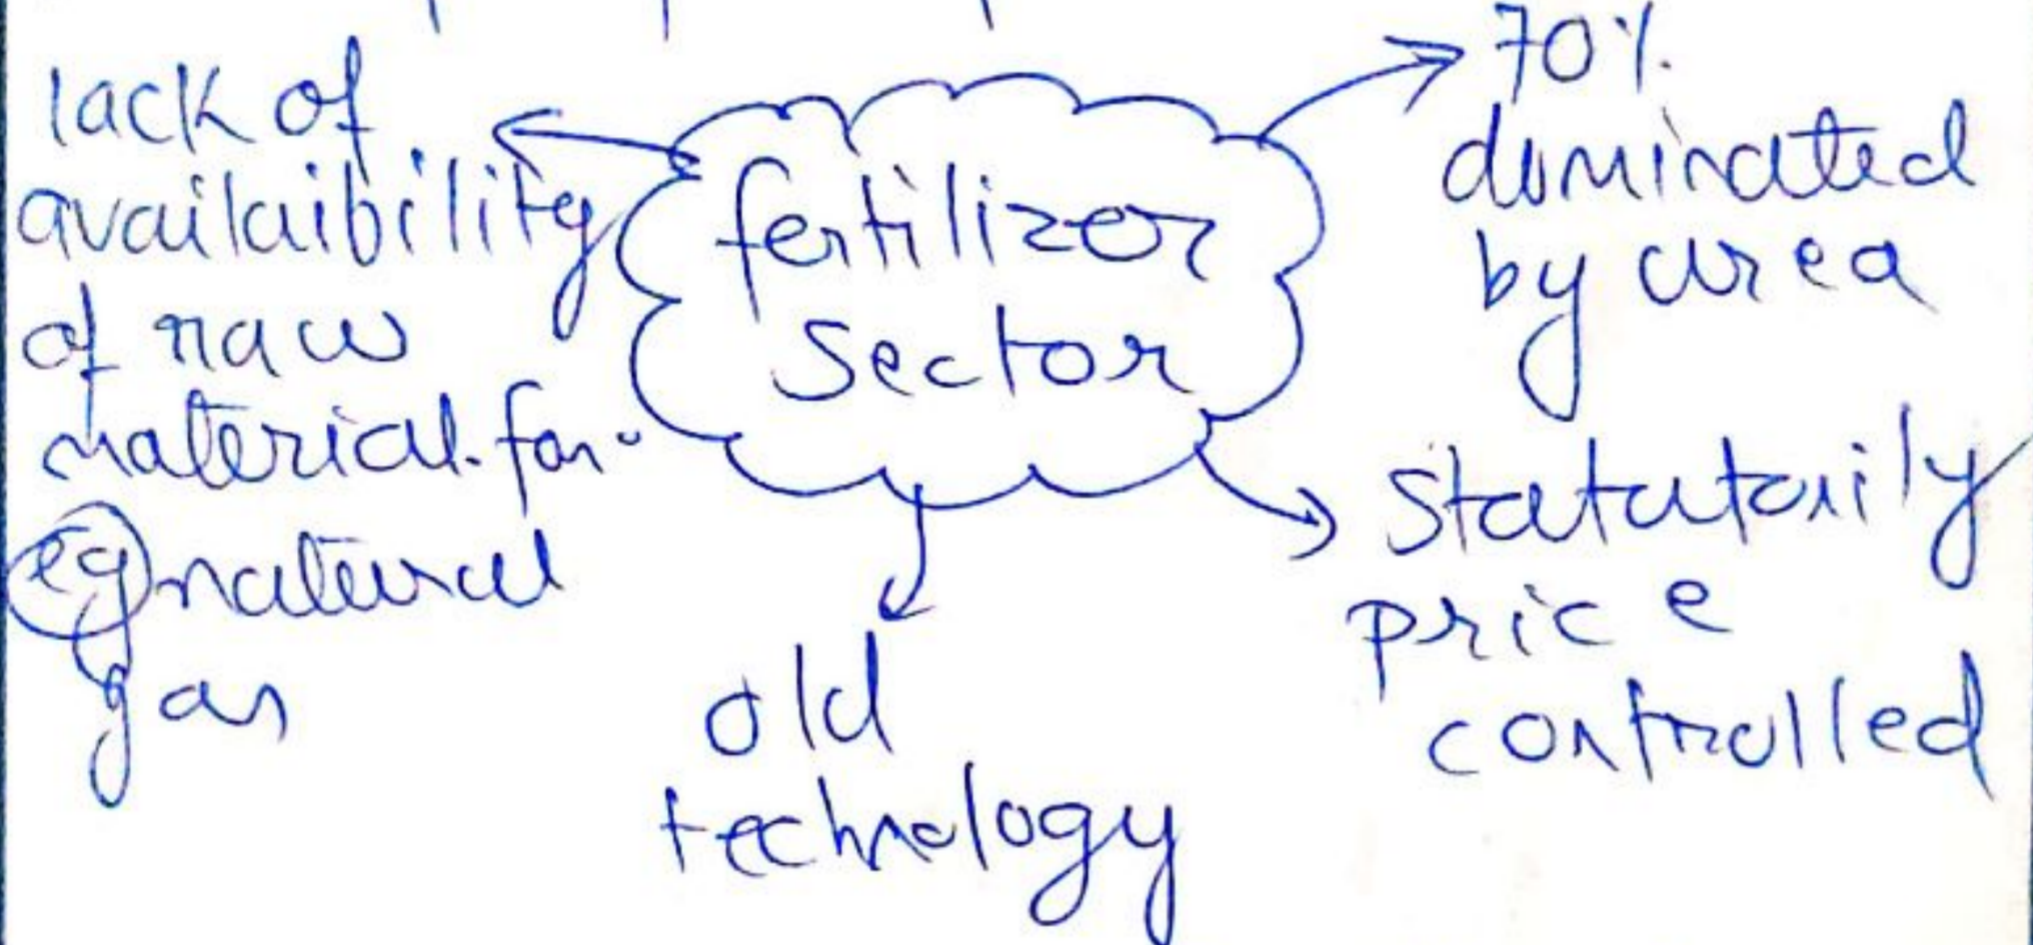 lack of
availaibility
of raw
material. for
eg natural
gas
fertilizer
sector
70%
dominated
by urea
statutorily
price
controlled
old
technology